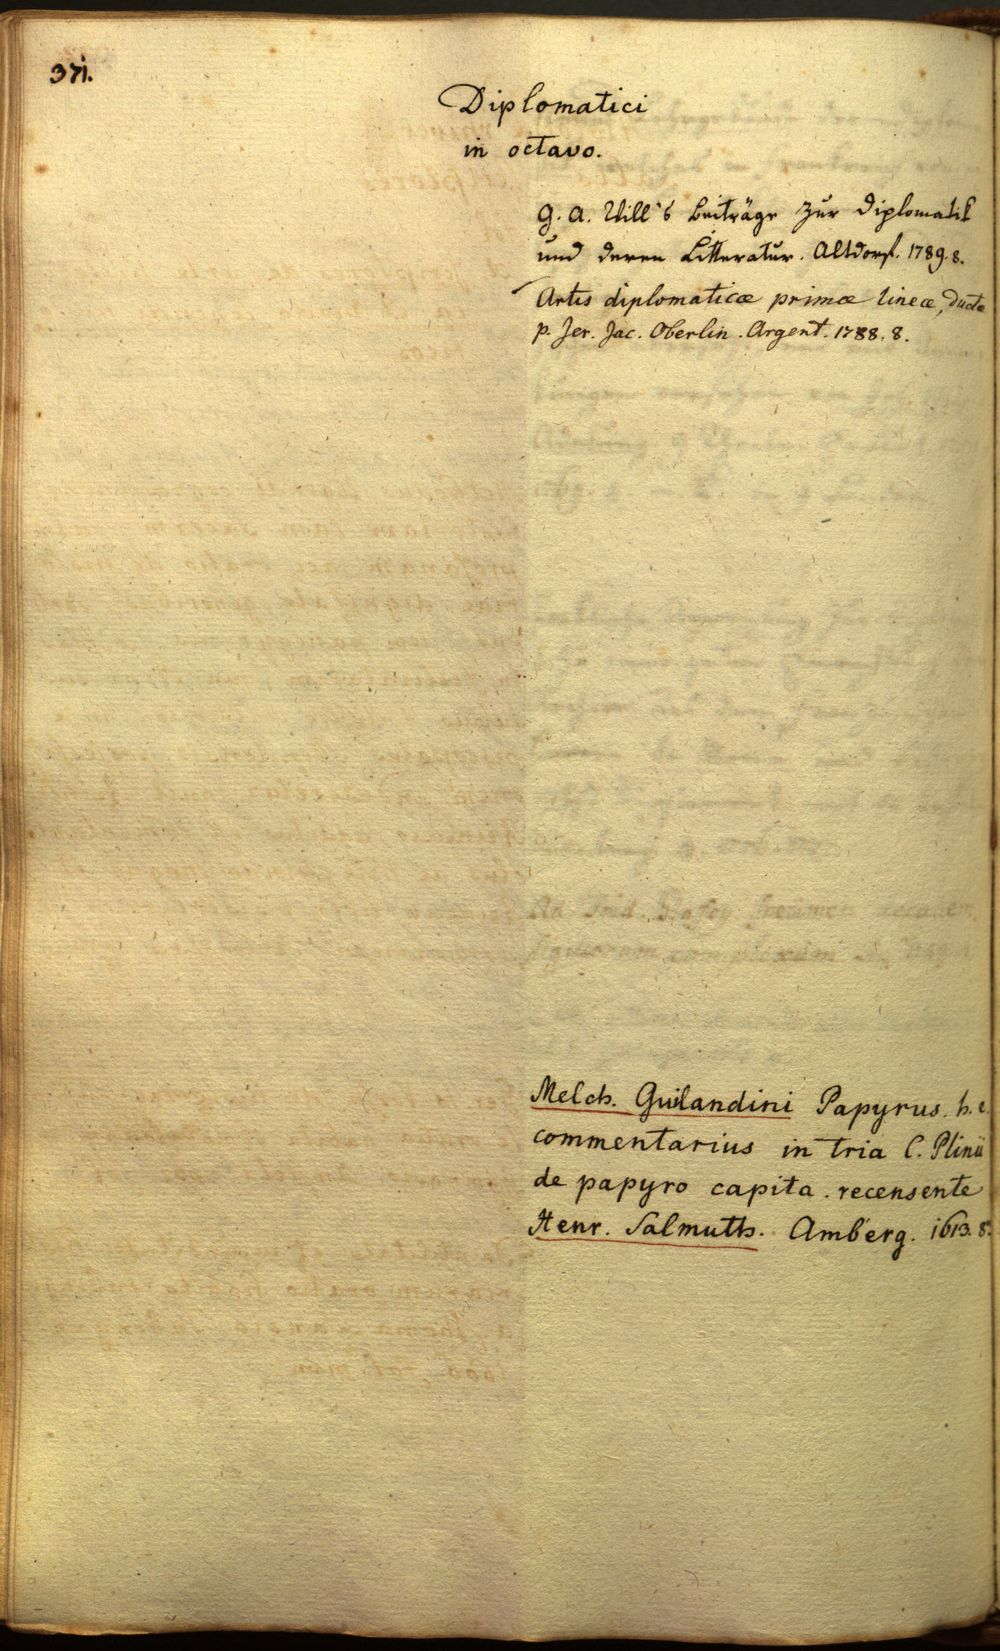 371.
Diplomatici
in octavo.
G. A. Will's Beiträge zur Diplomatik
und deren Litteratur. Altdorf. 1789. 8.
Artis diplomaticæ primæ lineæ, ducta
p. Jer. Jac. Oberlin. Argent. 1788. 8.
Melch. Guilandini Papyrus. h. e.
commentarius in tria C. Plinii
de papyro capita. recensente
Henr. Salmuth. Amberg. 1613. 8.